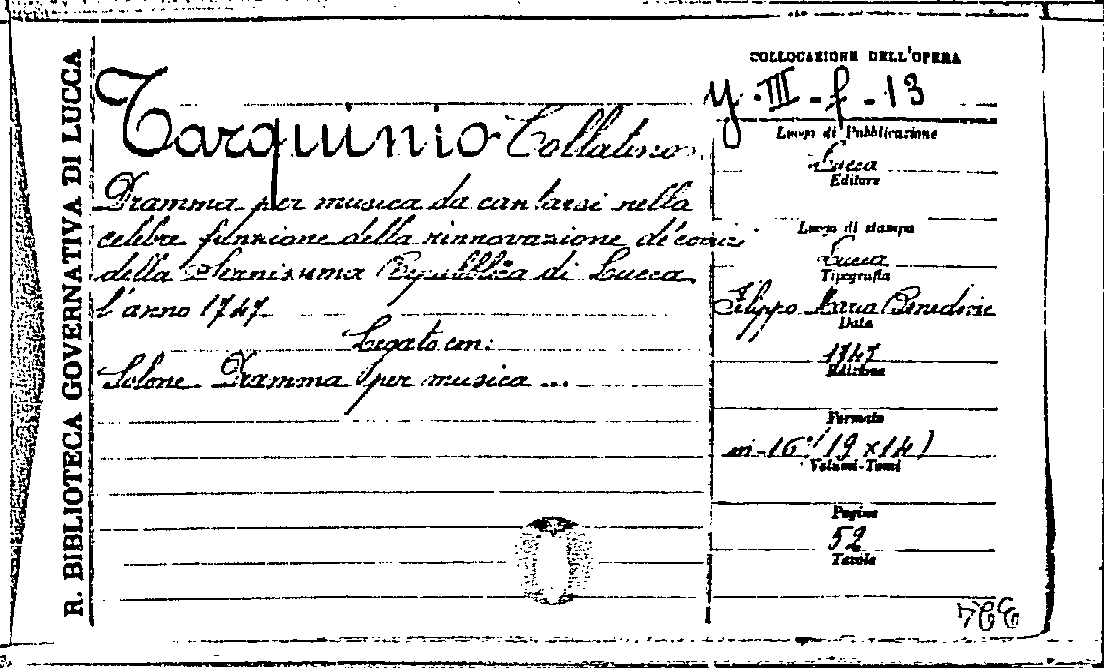 R. BIBLIOTECA GOVERNATIVA DI LUCCA
Tarquinio Collatino
Dramma per musica da cantarsi nella
celebre funzione della rinnovazione de' comizi
della Serenissima Repubblica di Lucca
l'anno 1747
Legato con:
Solone Dramma per musica ...
COLLOCAZIONE DELL'OPERA
y. III - f - 13
Luogo di Pubblicazione
Lucca
Editore
Luogo di stampa
Lucca
Tipografia
Filippo Maria Benedini
Data
1747
Edizione
Formato
in-16° (19 x 14)
Volumi-Tomi
Pagine
52
Tavole